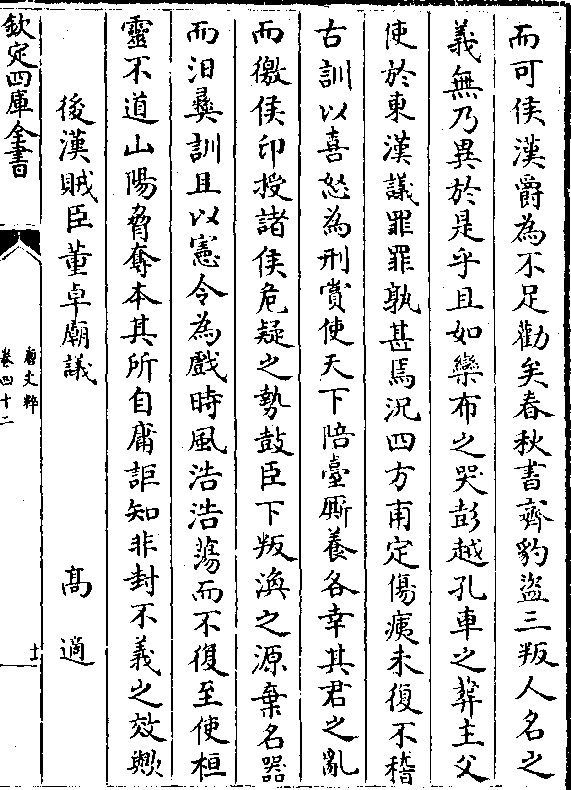 而可侯漢爵為不足勸矣春秋書齊豹盜三叛人名之
義無乃異於是乎且如欒布之哭彭越孔車之葬主父
使於東漢議罪罪孰甚焉況四方甫定傷痍未復不稽
古訓以喜怒為刑賞使天下陪臺厮養各幸其君之亂
而徼侯印授諸侯危疑之勢鼓臣下叛渙之源棄名器
而汨彝訓且以憲令為戲時風浩浩蕩而不復至使桓
靈不道山陽脅奪本其所自庸詎知非封不義之效歟
後漢賊臣董卓廟議 高適
欽定四庫全書
唐文粹
卷四十二
十